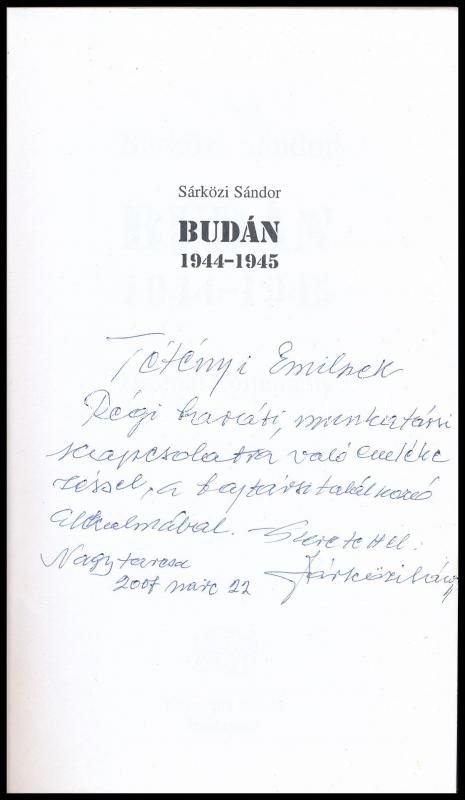 Sárközi Sándor
BUDÁN
1944–1945
Tétényi Emilnek
Régi baráti, munkatársi
kapcsolatra való emléke
zéssel, a bajtársi találkozó
alkalmával. Szeretettel:
Nagytarcsa
2007 márc 22